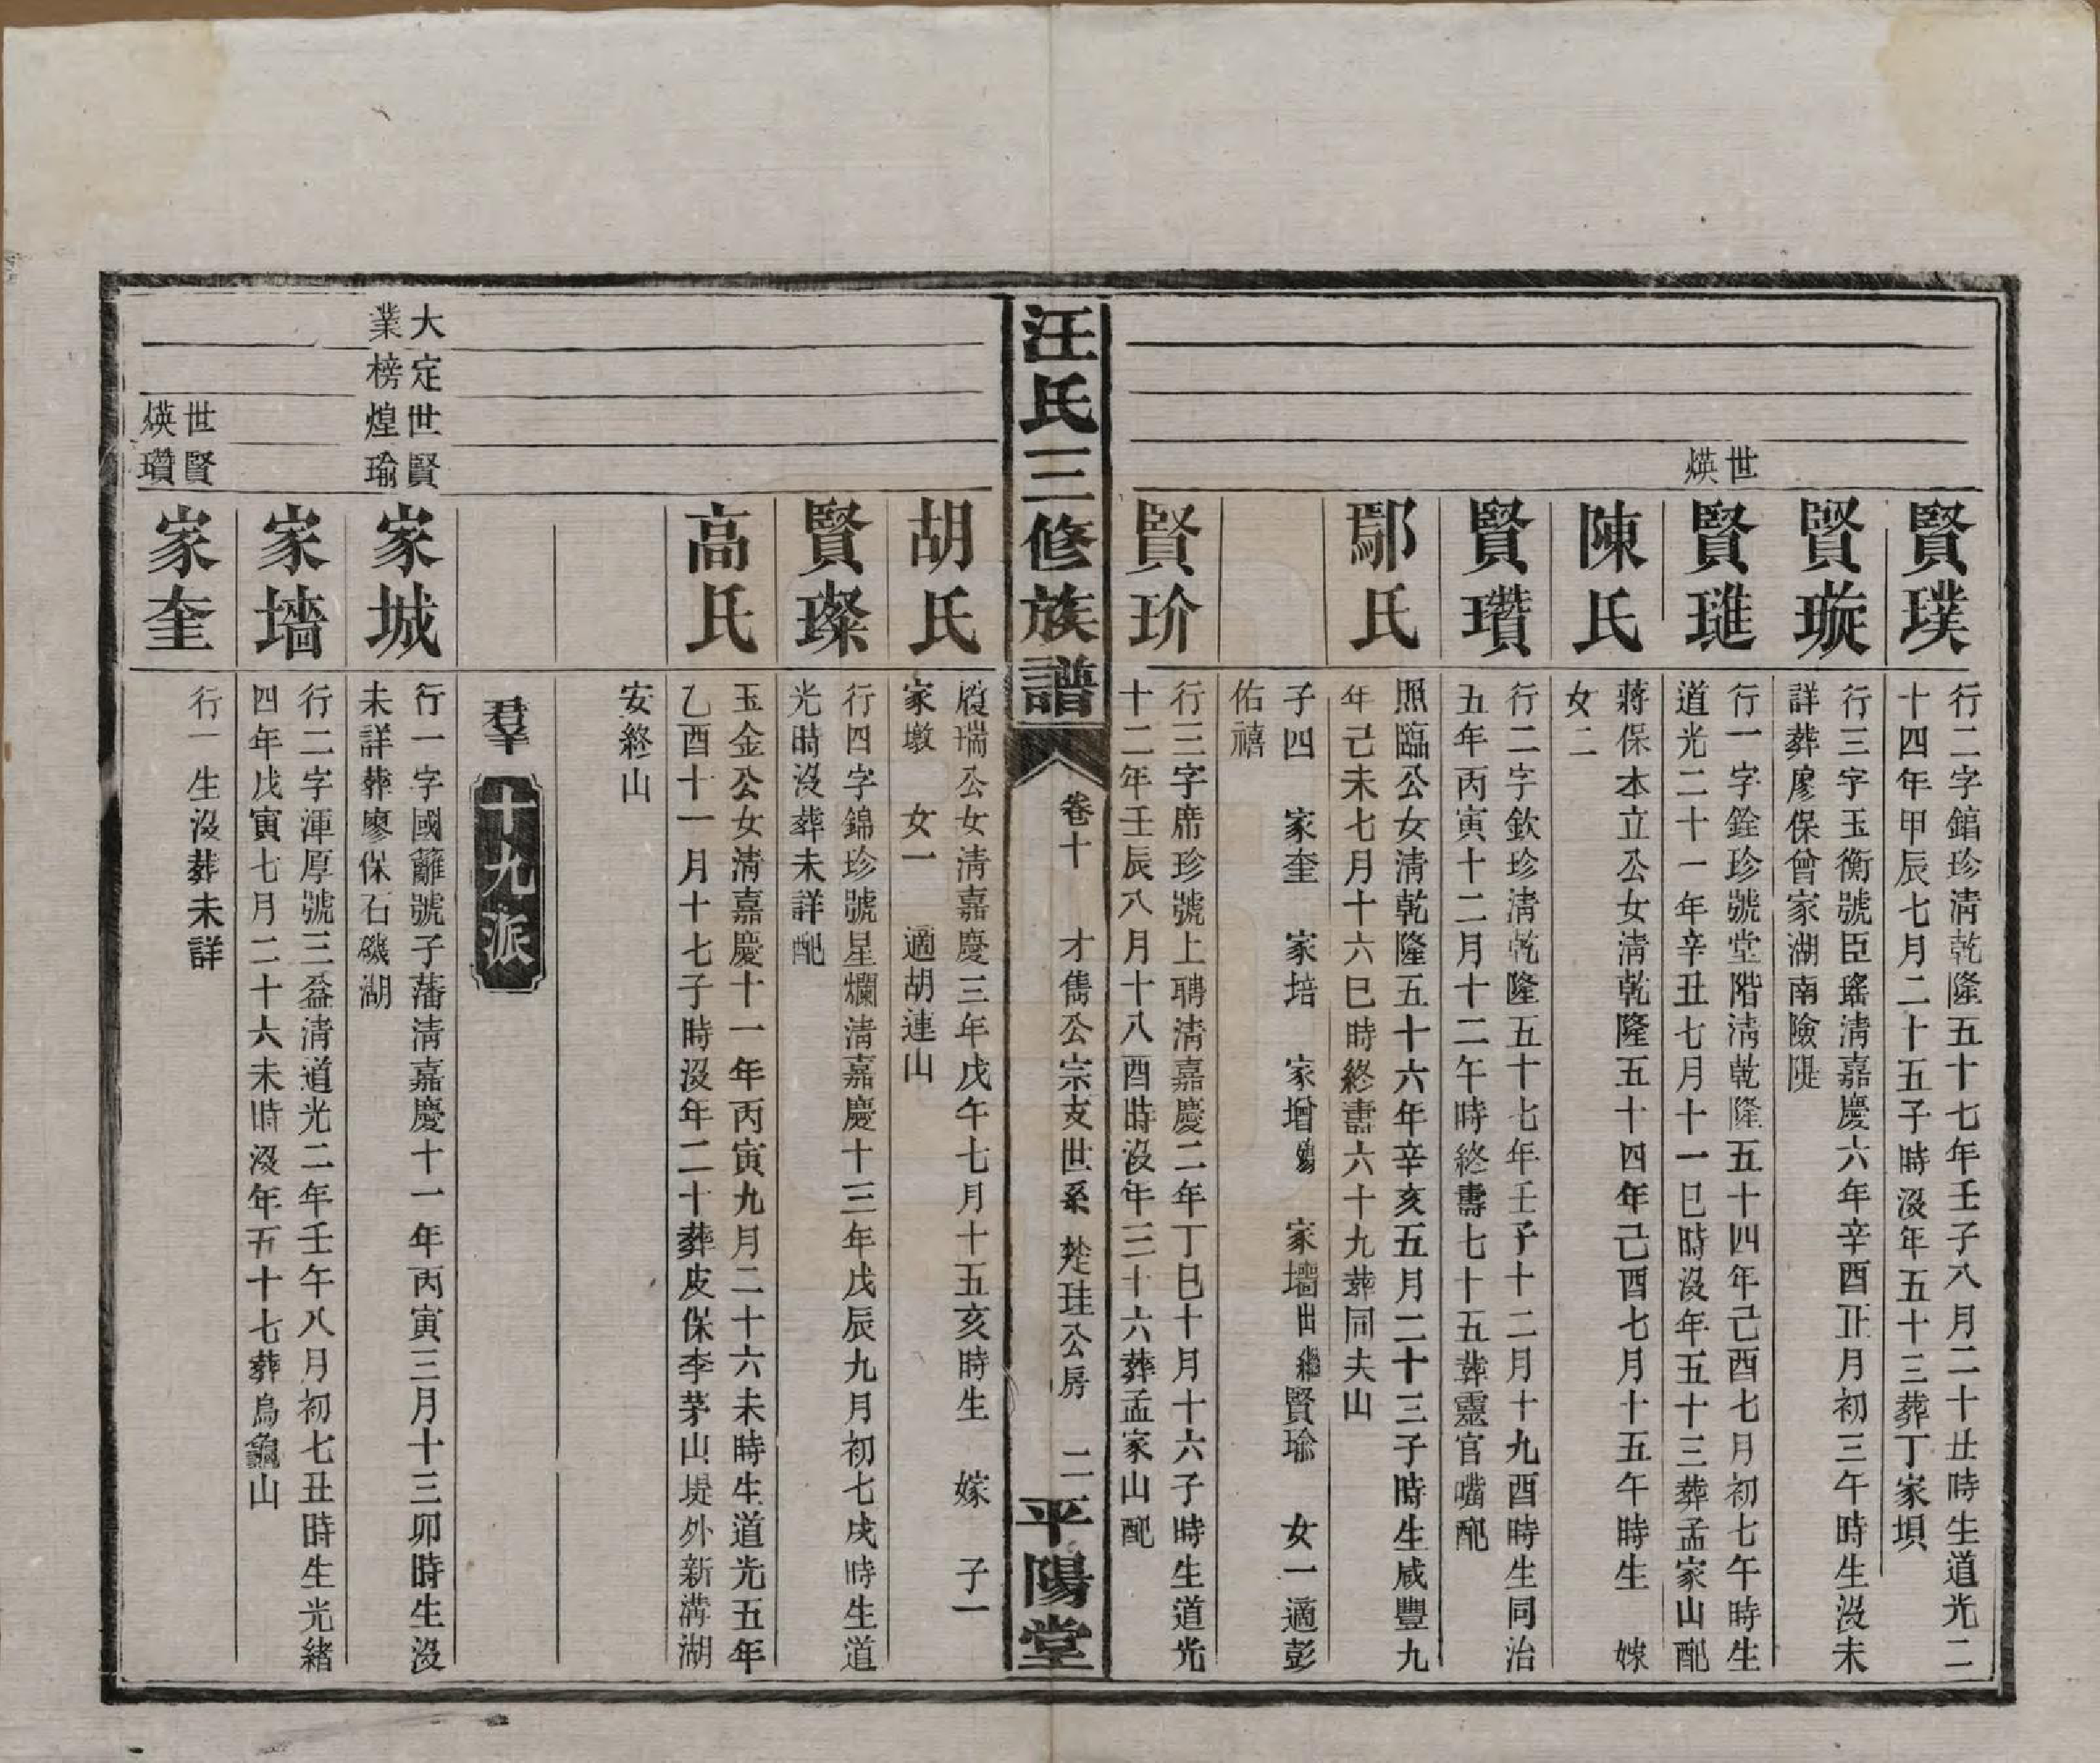 賢璞
行二字錧珍淸乾隆五十七年壬子八月二十丑時生道光二
十四年甲辰七月二十五子時沒年五十三葬丁家垻
賢璇
行三字玉衡號臣瑤淸嘉慶六年辛酉正月初三午時生沒未
詳葬廖保曾家湖南險隄
世
煐
賢璡
行一字銓珍號堂階淸乾隆五十四年己酉七月初七午時生
道光二十一年辛丑七月十一巳時沒年五十三葬孟家山配
陳氏
蔣保本立公女淸乾隆五十四年己酉七月十五午時生　嫁
女二
賢瓚
行二字欽珍淸乾隆五十七年壬子十二月十九酉時生同治
五年丙寅十二月十二午時終壽七十五葬靈官嘴配
鄢氏
照臨公女淸乾隆五十六年辛亥五月二十三子時生咸豐九
年己未七月十六巳時終壽六十九葬同夫山
子四　家奎　家培　家增殤　家墻出繼賢瑜　女一適彭
佑禧
賢玠
行三字席珍號上聘淸嘉慶二年丁巳十月十六子時生道光
十二年壬辰八月十八酉時沒年三十六葬孟家山配
汪氏三修族譜
卷十　才雋公宗支世系　公房　二
平陽堂
胡氏
殿瑞公女淸嘉慶三年戊午七月十五亥時生　嫁　子一
家墩　女一　適胡連山
賢璨
行四字錦珍號星爛淸嘉慶十三年戊辰九月初七戌時生道
光時沒葬未詳配
高氏
玉金公女淸嘉慶十一年丙寅九月二十六未時生道光五年
乙酉十一月十七子時沒年二十葬皮保李茅山堤外新溝湖
安終山
羣　十九派
大定世賢
業榜煌瑜
家城
行一字國籬號子藩淸嘉慶十一年丙寅三月十三卯時生沒
未詳葬廖保石磯湖
家墻
行二字渾厚號三益淸道光二年壬午八月初七丑時生光緖
四年戊寅七月二十六未時沒年五十七葬烏龜山
世賢
煐瓚
家奎
行一生沒葬未詳